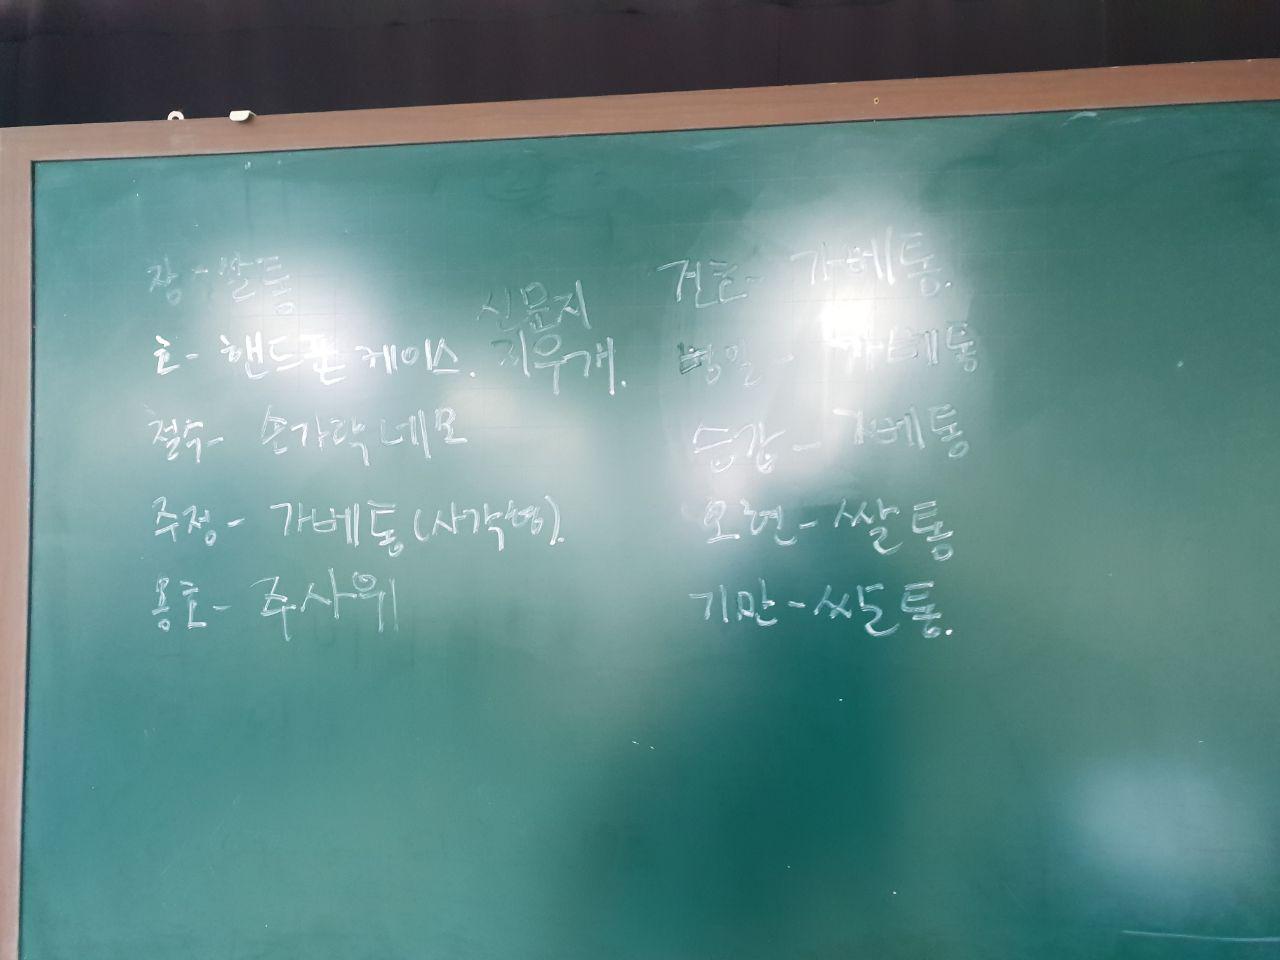 장 - 쌀통
호 - 핸드폰 케이스. 신문지 지우개.
철수 - 손가락 네모
주정 - 가베통(사각형).
용호 - 주사위
건호 - 가베통.
병일 - 가베통
승강 - 가베통
오현 - 쌀통
기만 - 쌀통.